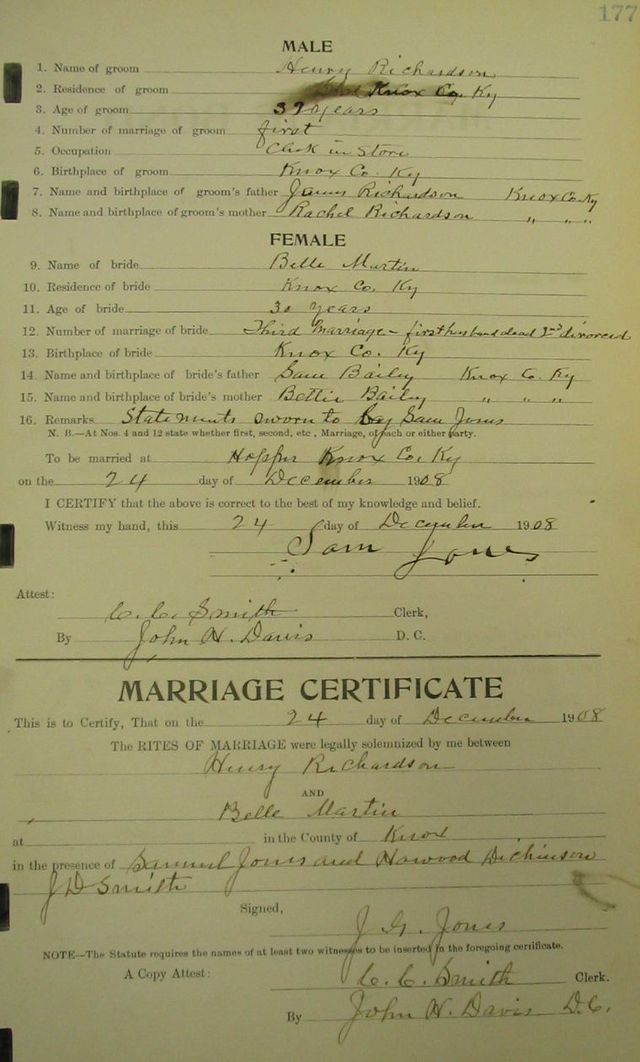 177
MALE
1. Name of groom Henry Richardson
2. Residence of groom Knox Co, Ky
3. Age of groom years
4. Number of marriage of groom first
5. Occupation Clerk in Store
6. Birthplace of groom Knox Co. Ky
7. Name and birthplace of groom's father James Richardson Knox Co. Ky
8. Name and birthplace of groom's mother Rachel Richardson " " "
FEMALE
9. Name of bride Belle Martin
10. Residence of bride Knox Co, Ky
11. Age of bride 30 years
12. Number of marriage of bride Third Marriage - first husband dead 2nd divorced
13. Birthplace of bride Knox Co. Ky
14. Name and birthplace of bride's father Sam Bailey Knox Co. Ky
15. Name and birthplace of bride's mother Bettie Bailey " " "
16. Remarks Statements sworn to by Sam Jones
N. B.—At Nos. 4 and 12 state whether first, second, etc., Marriage, of each or either party.
To be married at Hopper Knox Co. Ky
on the 24 day of December 1908
I CERTIFY that the above is correct to the best of my knowledge and belief.
Witness my hand, this 24 day of December 1908
Sam Jones
Attest:
C. C. Smith Clerk,
By John H. Davis D. C.
MARRIAGE CERTIFICATE
This is to Certify, That on the 24 day of December 1908
The RITES OF MARRIAGE were legally solemnized by me between
Henry Richardson
AND
Belle Martin
at in the County of Knox
in the presence of Samuel Jones and Dickinson
J D Smith
Signed,
J. G. Jones
NOTE—The Statute requires the names of at least two witnesses to be inserted in the foregoing certificate.
A Copy Attest: C. C. Smith Clerk.
By John H. Davis D.C.